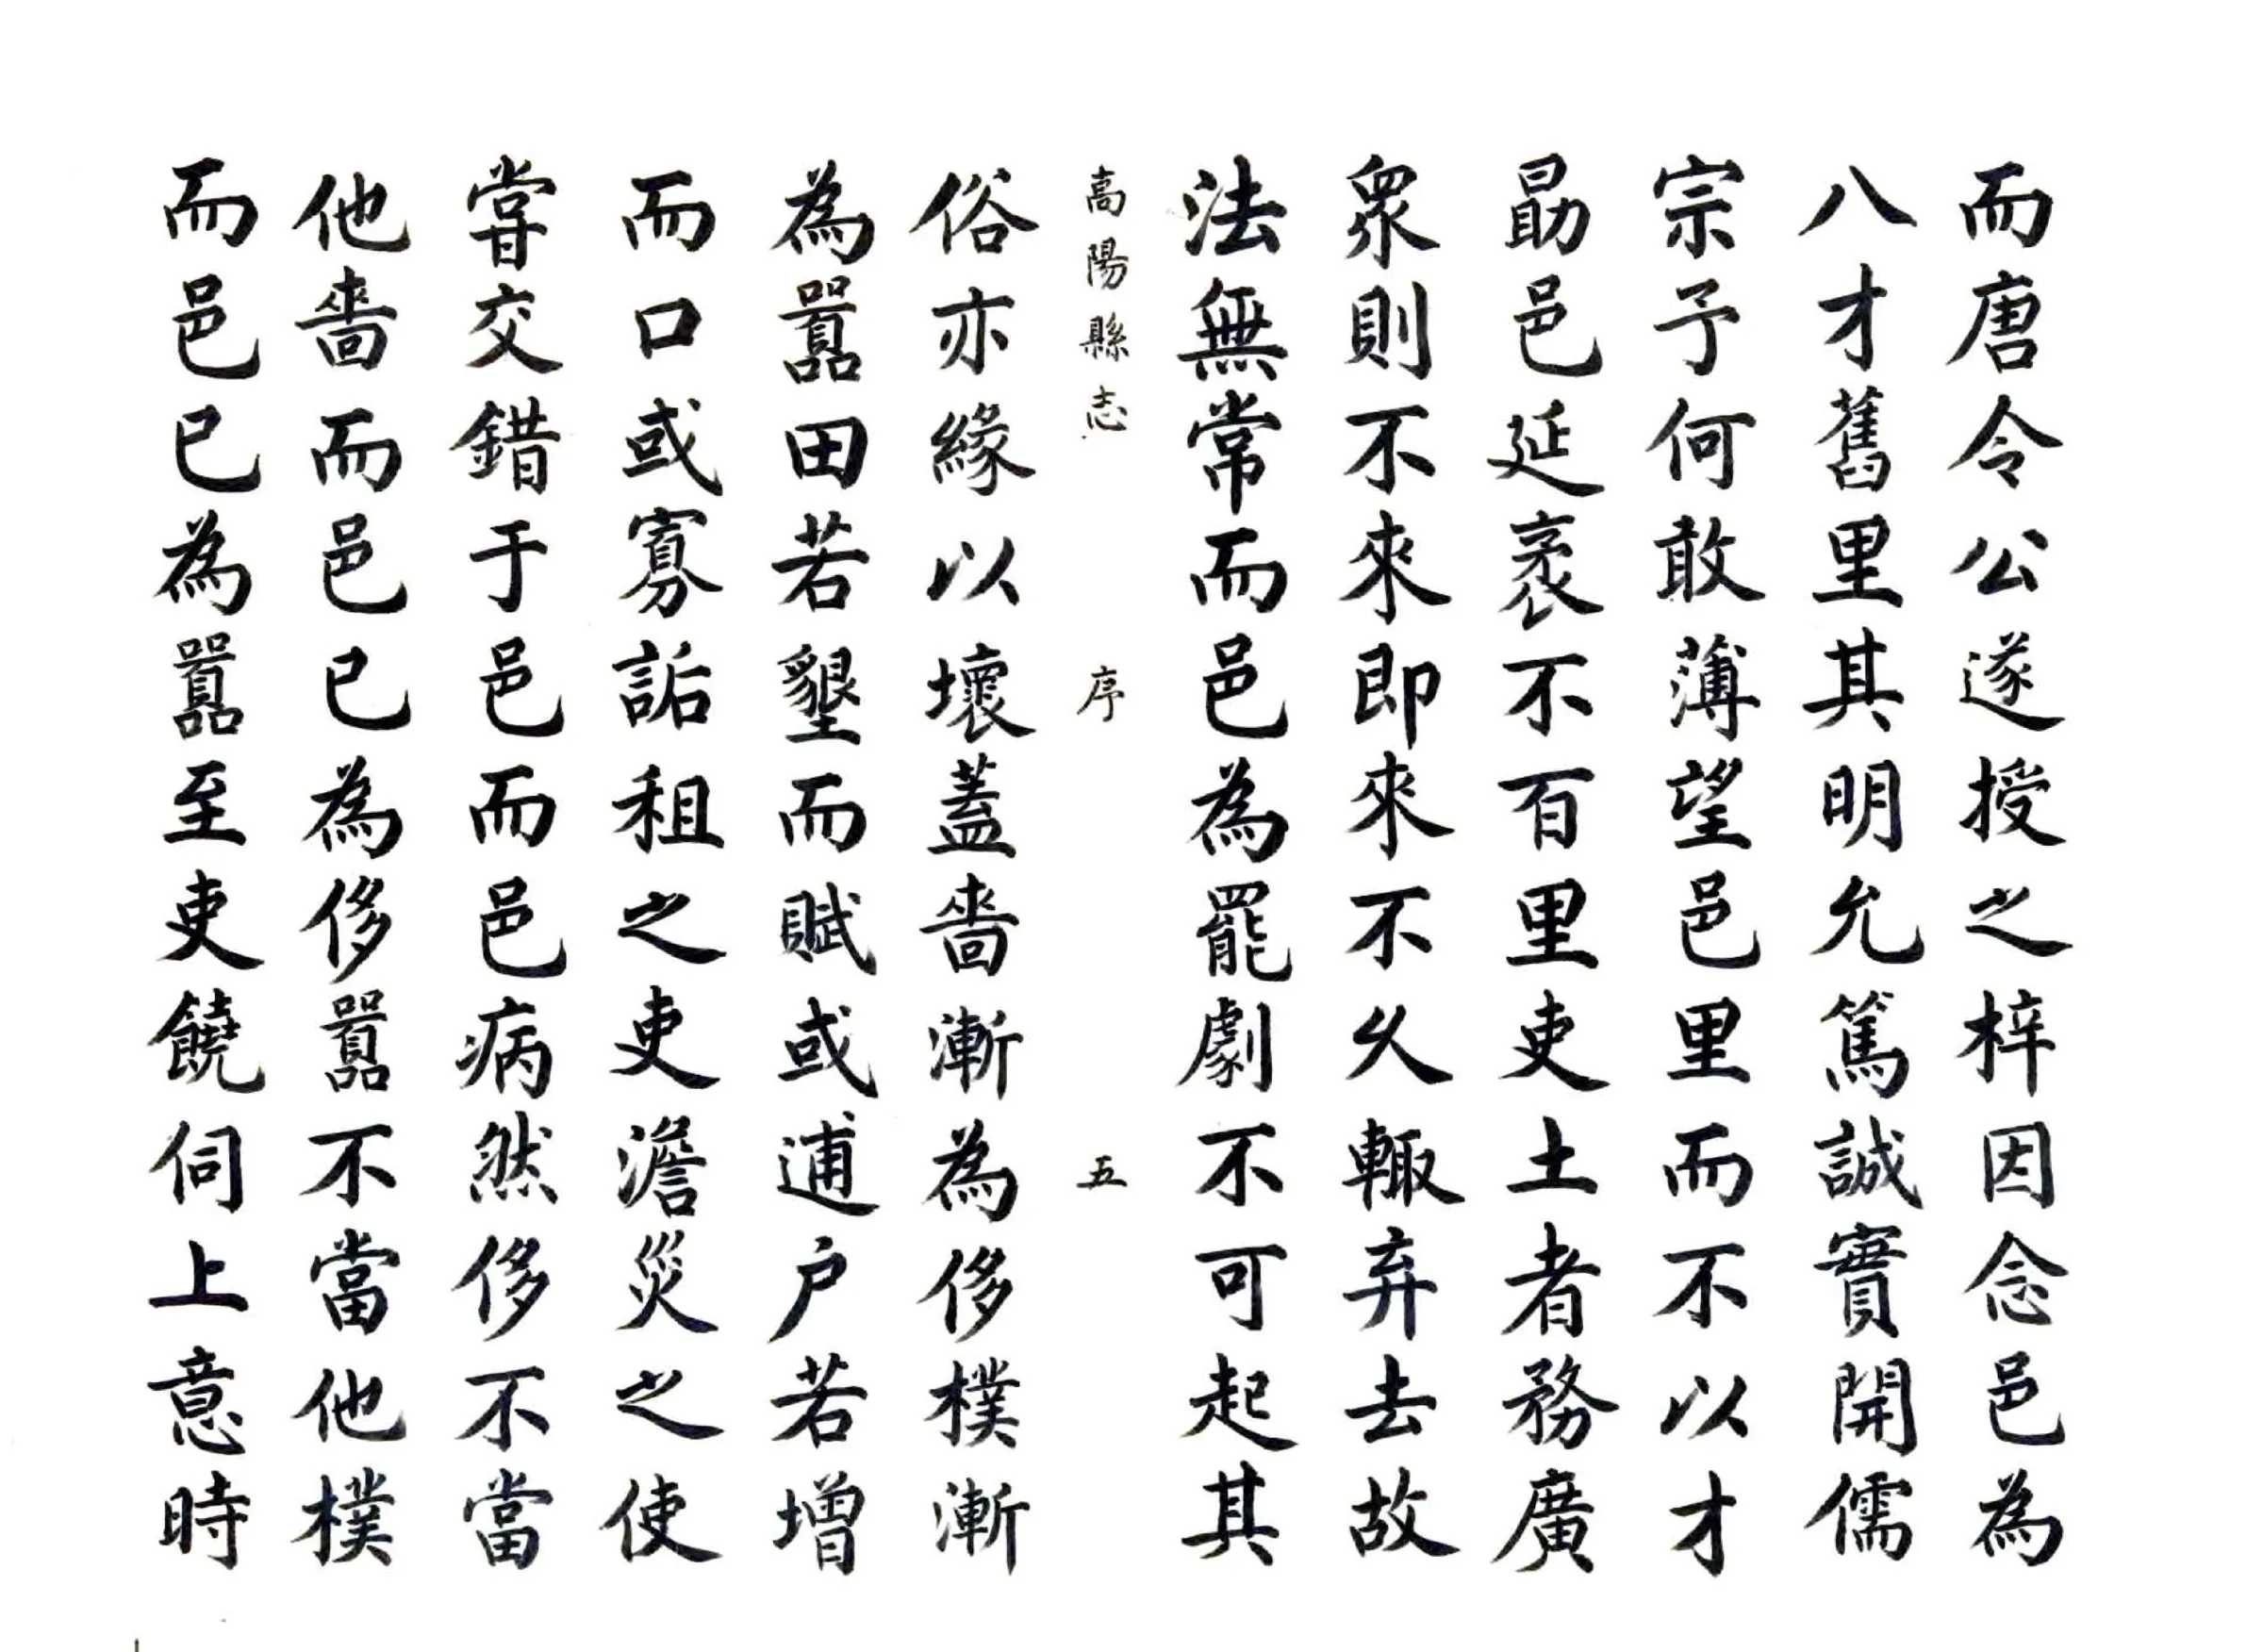 而唐令公遂授之梓因念邑為
八才舊里其明允篤誠實開儒
宗予何敢薄望邑里而不以才
勗邑延袤不百里吏土者務廣
眾則不來即來不久輙弃去故
法無常而邑為罷劇不可起其
高陽縣志 序 五
俗亦緣以壞蓋嗇漸為侈樸漸
為嚚田若墾而賦或逋户若增
而口或寡詬租之吏澹災之使
甞交錯于邑而邑病然侈不當
他嗇而邑已為侈嚚不當他樸
而邑已為嚚至吏饒伺上意時